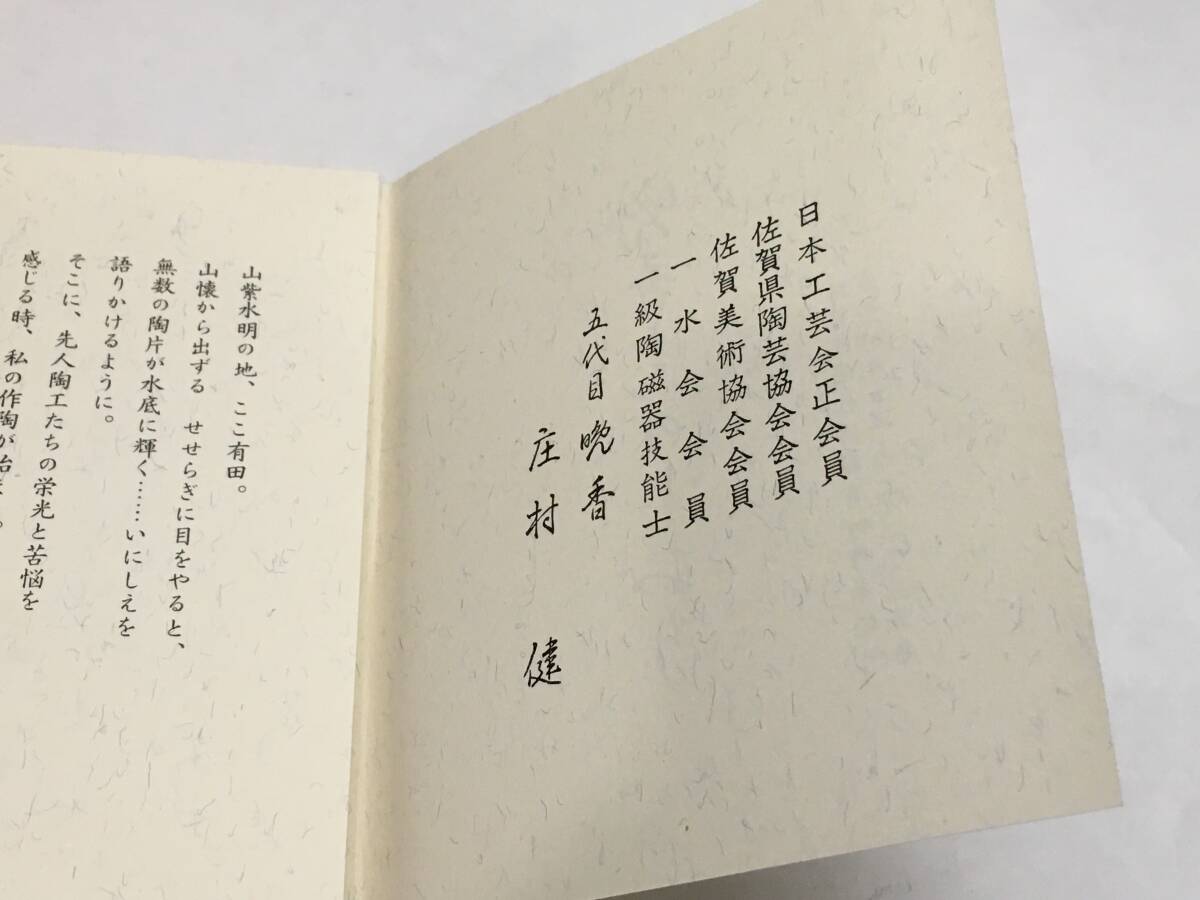 日本工芸会正会員
佐賀県陶芸協会会員
佐賀美術協会会員
一水会会員
一級陶磁器技能士
五代目晩香
庄村健
山紫水明の地、ここ有田。
山懐から出ずる せせらぎに目をやると、
無数の陶片が水底に輝く……いにしえを
語りかけるように。
そこに、先人陶工たちの栄光と苦悩を
感じる時、私の作陶が始